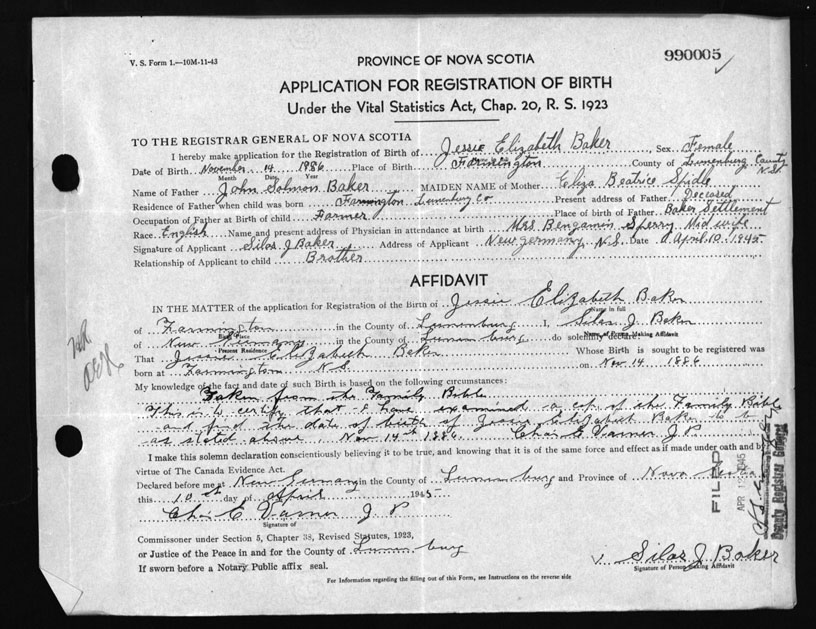 V. S. Form 1.—10M-11-43
PROVINCE OF NOVA SCOTIA
990005
APPLICATION FOR REGISTRATION OF BIRTH
Under the Vital Statistics Act, Chap. 20, R. S. 1923
TO THE REGISTRAR GENERAL OF NOVA SCOTIA
I hereby make application for the Registration of Birth of Jessie Elizabeth Baker Sex Female
Date of Birth November 14 1886 Place of Birth Farmington County of Lunenburg County N.S.
Month Day Year
Name of Father John Solomon Baker MAIDEN NAME of Mother Eliza Beatrice Spidle
Residence of Father when child was born Farmington Lunenburg Co Present address of Father Deceased
Occupation of Father at Birth of child Farmer Place of birth of Father Baker Settlement
Race English Name and present address of Physician in attendance at birth Mrs Benjamin Sperry Mid wife
Signature of Applicant Silas J Baker Address of Applicant New Germany N.S. Date April 10 1945
Relationship of Applicant to child Brother
AFFIDAVIT
IN THE MATTER of the application for Registration of the Birth of Jessie Elizabeth Baker
Name in full
of Farmington in the County of Lunenburg I, Silas J. Baker
Birth Place Name of Person Making Affidavit
of New Germany in the County of Lunenburg do solemnly declare:
Present Residence
That Jessie Elizabeth Baker Whose Birth is sought to be registered was
born at Farmington N.S. on Nov 14 1886
My knowledge of the fact and date of such Birth is based on the following circumstances:
Taken from the Family Bible
This is to certify that I have examined a cop of the Family Bible
and find the date of birth of Jessie Elizabeth Baker to b
as stated above, Nov 14st 1886. Chas E Varner J.P.
I make this solemn declaration conscientiously believing it to be true, and knowing that it is of the same force and effect as if made under oath and by
virtue of The Canada Evidence Act.
Declared before me at New Germany in the County of Lunenburg and Province of Nova Scotia
this 10st day of April 1945
Chas E Varner J P
Signature of
Commissoner under Section 5, Chapter 38, Revised Statutes, 1923,
or Justice of the Peace in and for the County of Lunenburg
If sworn before a Notary Public affix seal.
Silas J Baker
Signature of Person Making Affidavit
For Information regarding the filling out of this Form, see Instructions on the reverse side
FILED
APR 1945
Deputy Registrar General